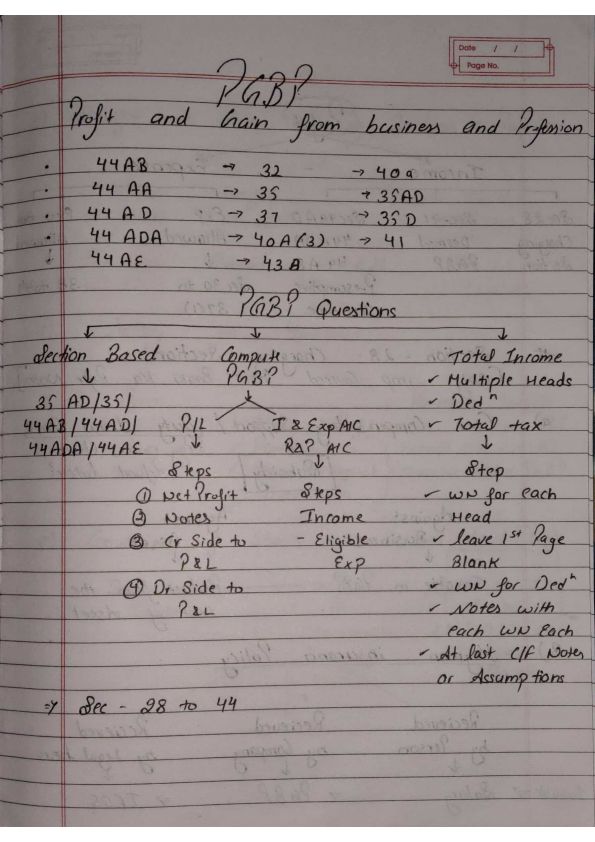 Date / /
Page No.
PGBP
Profit and Gain from business and Profession
• 44AB → 32 → 40a
• 44 AA → 35 → 35AD
• 44 AD → 37 → 35D
• 44 ADA → 40A(3) → 41
44 AE → 43B
PGBP Questions
Section Based
35 AD/35/
44AB/44AD/
44ADA/44AE
Compute
PGBP
P/L
Steps
① Net Profit
② Notes
③ Cr Side to
P&L
④ Dr Side to
P&L
I & Exp A/C
R&P A/C
Steps
Income
- Eligible
Exp
Total Income
✓ Multiple Heads
✓ Dedⁿ
✓ Total tax
Step
✓ WN for each
Head
✓ leave 1st Page
Blank
✓ WN for Dedⁿ
✓ Notes with
each WN Each
✓ At last C/F Notes
or Assumptions
⇒ Sec - 28 to 44